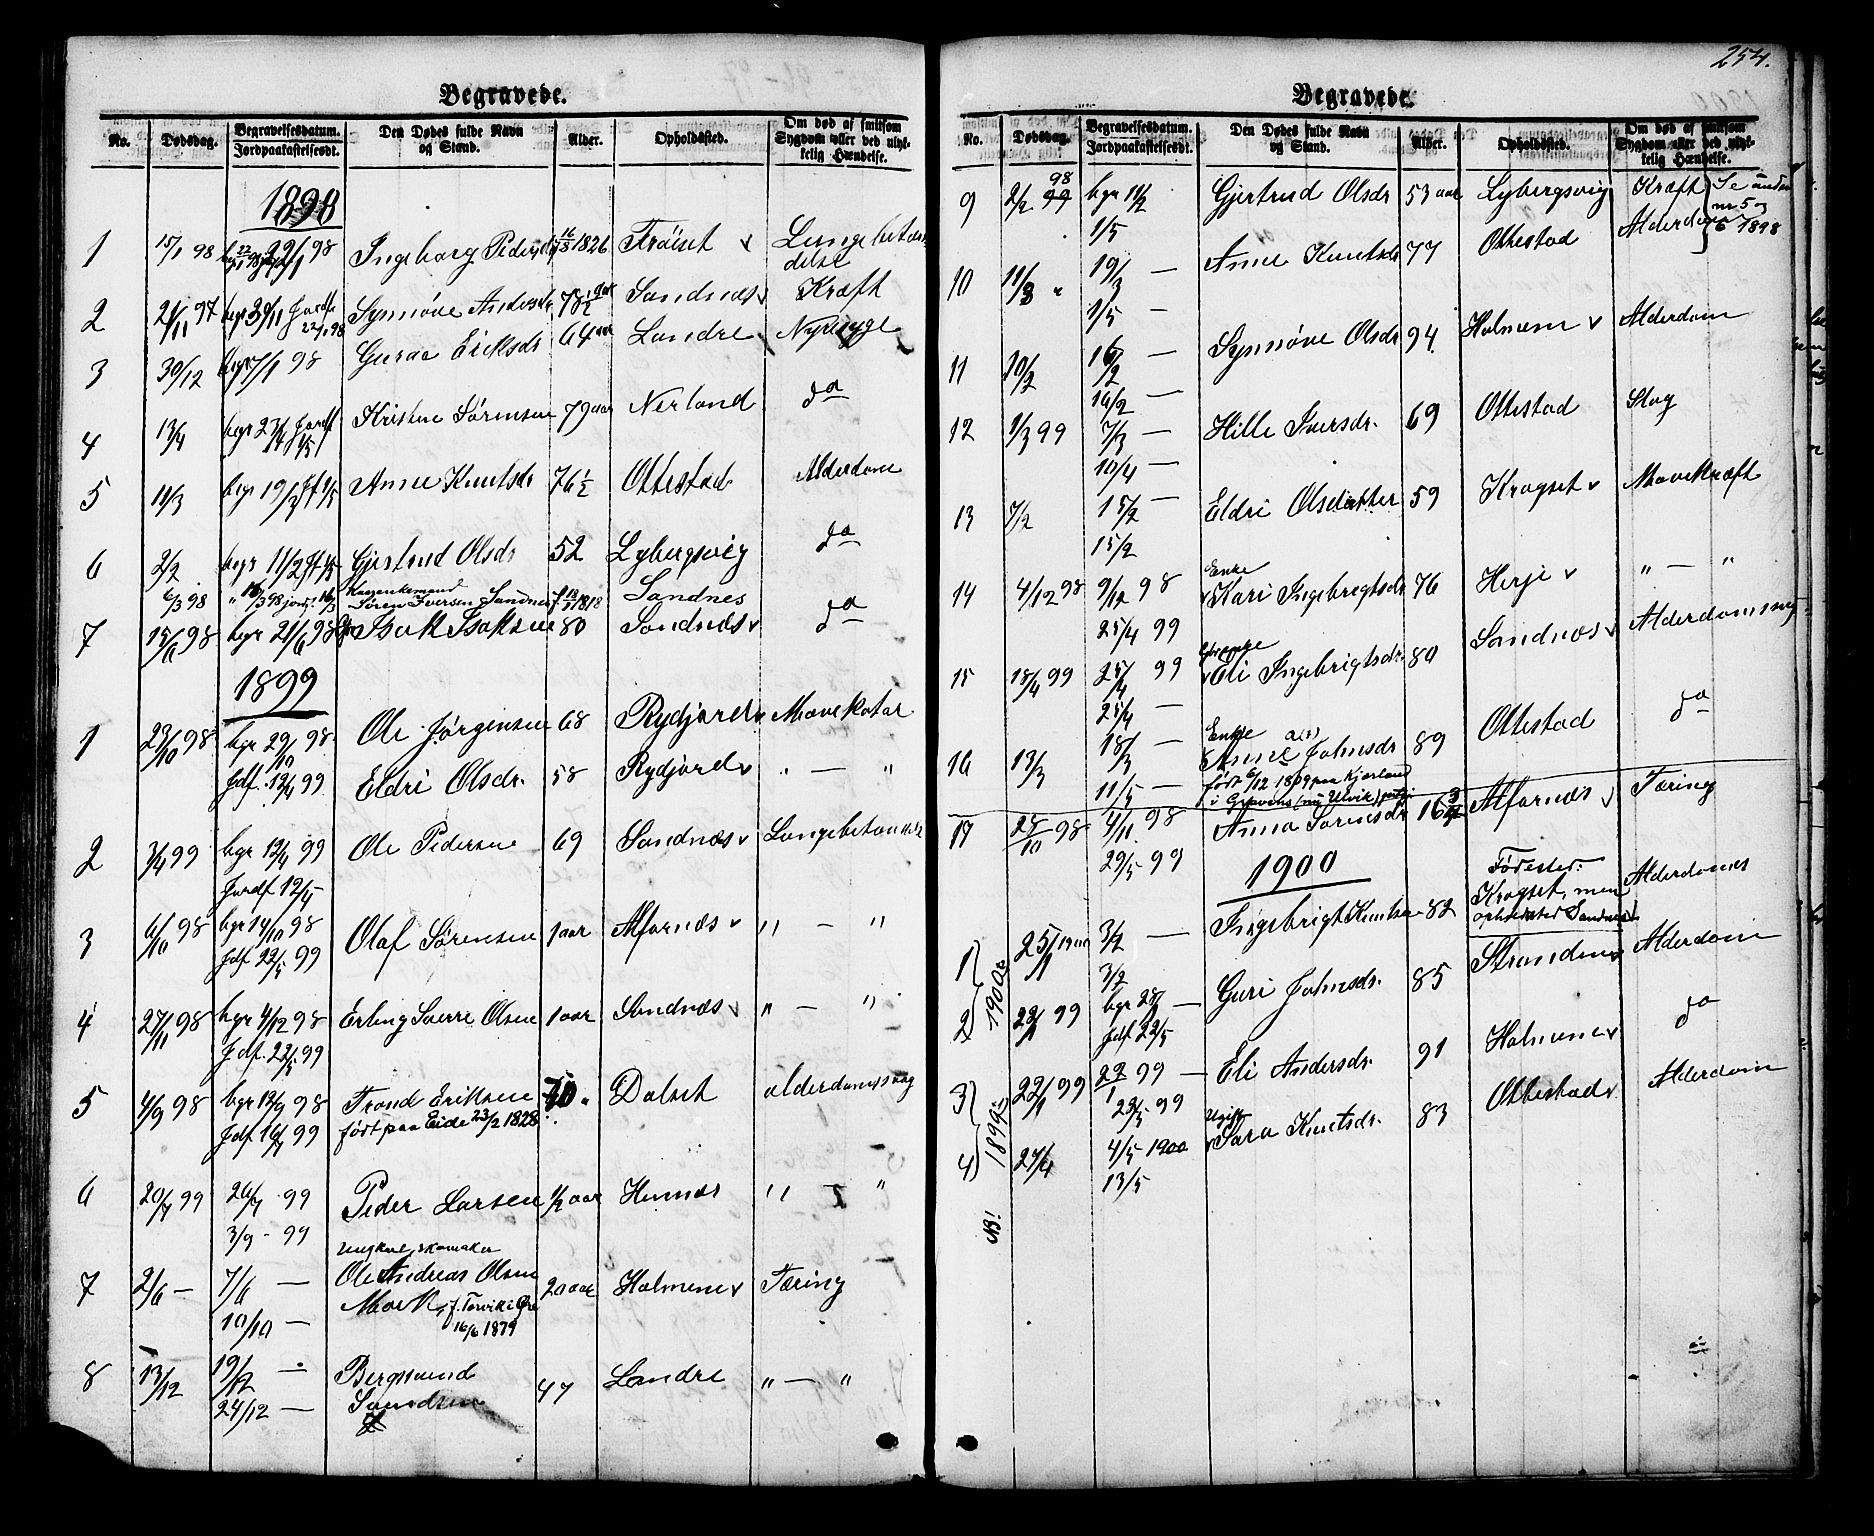 254.
Begravede.
No. Dødsdag. Begravelsesdatum. Jordpaakastelsesdt. Den Dødes fulde Navn og Stand. Alder. Opholdssted. Om død af smitsom Sygdom eller ved ulykkelig Hændelse.
1898
1 15/1 98 Ingeborg Pedersdr 1826 Frøiset v Lungebetændelse
2 21/11 97 bgr 30/11 Jordf. 22/1 98 Synnøve Andersdr 78 1/2 aar Sandnæs v Kræft
3 30/12 bgr 7/1 98 Guraa Eriksdr 64 aar Landre Nyresyge
4 13/4 bgr 23/4 Jordf 1/5 Kristen Sørensen 79 aar Nerland do
5 11/3 bgr 19/3 Jf 1/5 Anne Knutsdr 76 1/2 Ottestad Alderdom
6 2/2 bgr 11/2 Jf 1/5 Gjertrud Olsdr 52 Lybergsvig do
6/3 98 " 16/3 98 jordf. 16/3 Søren Iversen Sandnes 1818 Sandnes
7 15/6 98 bgr 21/6 98 Isak Isaksen 80 Sandnæs v do
1899
1 23/10 98 bgr 29/10 98 Ole Jørgensen 68 Rydjord v Mavekatar
Jdf. 12/4 99 Eldri Olsdr. 58 Rydjord v " — "
2 3/4 99 bgr 12/4 99 Ole Pedersen 69 Sandnæs v Lungebetændelse
Jordf 12/4
3 6/10 98 bgr 14/10 98 Olaf Sørensen 1 aar Alfarnæs v " — "
Jdf 22/5 99
4 27/11 98 bgr 4/12 98 Erling Sverre Olsen 1 aar Sandnæs v " — "
Jdf. 22/5 99
5 4/9 98 bgr 12/9 98 Trond Eriksen 70 " Dalset alderdomssvag
Jdf 99 født paa Eide 23/2 1828
6 20/7 99 26/7 99 Peder Larsen 1/2 aar Hennæs " — "
3/9 - 99
Ungkarl, skomaker
7 2/6 — 7/6 — Ole Andreas Olsen 20 aar Holmene v Tæring
10/10 — Mork, f. Torvik i Grø
16/6 1879
8 13/12 19/12 — Bergsvend 47 Landre " — "
24/12 — Sandsen
Begravede.
No. Dødsdag. Begravelsesdatum. Jordpaakastelsesdt. Den Dødes fulde Navn og Stand. Alder. Opholdssted. Om død af smitsom Sygdom eller ved ulykkelig Hændelse.
9 2/2 98 99 bgr 11/2 Gjertrud Olsdr 53 aar Lybergsvig Kræft Se under
1/5 nr 5 og 6 1898
10 11/3 " 19/3 — Anne Knutsdr 77 Ottestad Alderdom
1/5 —
11 10/2 16/2 — Synnøve Olsdr 94 Holmem v Alderdom
16/2 —
12 1/3 99 7/3 — Hille Iversdr. 69 Ottestad Slag
10/4 —
13 7/2 15/2 — Eldri Olsdatter 59 Krogset v Mavekræft
15/2
Enke
14 4/12 98 9/12 98 Kari Ingebrigtsdr 76 Herje v " — "
25/4 99
15 18/4 99 25/4 99 Eli Ingebrigtsdr. 80 Sandnæs v Alderdomssvag
25/4 —
Enke
16 13/3 18/3 — Anne Johnsdr 89 Ottestad do
11/5 — født 6/12 1809 paa Kjærland
i Gravens (nu Ulvik)
17 28/10 98 4/11 98 Anna Sørensdr 16 3/4 Alfarnæs v Tæring
29/5 99
1900
Føðested:
1 25/1 1900 3/2 — Ingebrigt Knutsen 82 Krogset, men Alderdoms
3/2 opholdsted Sandnes
2 22/1 99 bgr 28/1 — Guri Johnsdr. 85 Stranden v Alderdom
1900 Jdf 22/5
3 22/1 99 22/1 99 — Eli Andersdr 91 Holmene v do
23/5 99
1899 Ugift
4 27/4 4/5 1900 Sara Knutsdr. 83 Ottestad v Alderdom
13/5
NB!